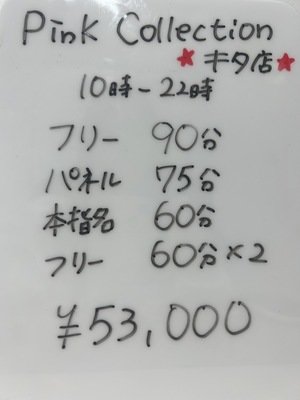 Pink Collection
★キタ店★
10時-22時
フリー 90分
パネル 75分
本指名 60分
フリー 60分×2
¥53,000